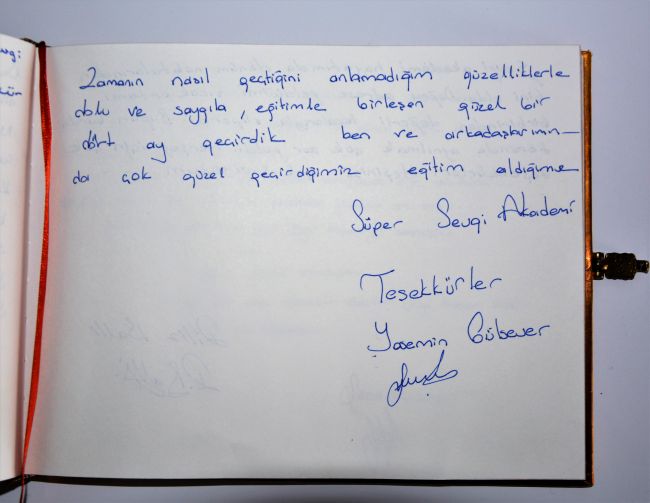 vgi
Zamanın nasıl geçtiğini anlamadığım güzelliklerle
dolu ve saygıla, eğitimle birleşen güzel bir
dört ay geçirdik ben ve arkadaşlarımın-
da çok güzel geçirdiğimiz eğitim aldığımız
Süper Sevgi Akademi
Teşekkürler
Yasemin Gülsever